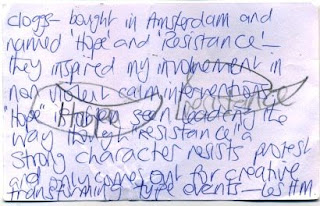 cloggs – bought in Amsterdam and
named 'Hope' and 'Resistance' –
they inspired my involvement in
non violent calm interventions
'Hope' is often seen leading the
way though 'resistance' a
strong character resists protest
and only comes out for creative
transforming type events – Les HM